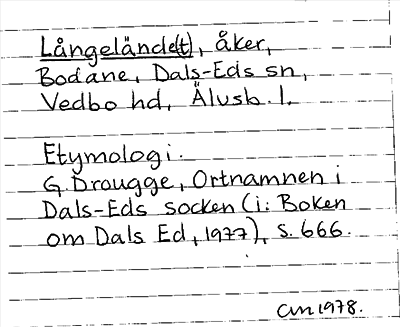 Långelände(t), åker,
Bodane, Dals-Eds sn,
Vedbo hd, Älvsb. l.
Etymologi.
G. Drougge, Ortnamnen i
Dals-Eds socken (i: Boken
om Dals Ed, 1977), s. 666.
CM 1978.